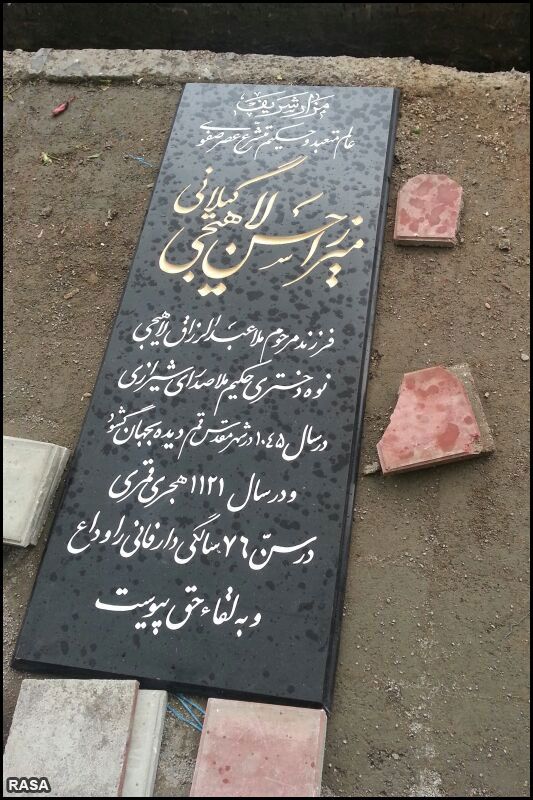 مزار شریف
عالم متعبد و حکیم متشرع عصر صفوی
میرزا حسن لاهیجی گیلانی
فرزند مرحوم ملا عبدالرزاق لاهیجی
نوه دختری حکیم ملاصدرای شیرازی
در سال ۱۰۴۵ در شهر مقدس قم دیده بجهان گشود
و در سال ۱۱۲۱ هجری قمری
در سنّ ۷۶ سالگی دار فانی را وداع
و به لقاء حق پیوست
RASA